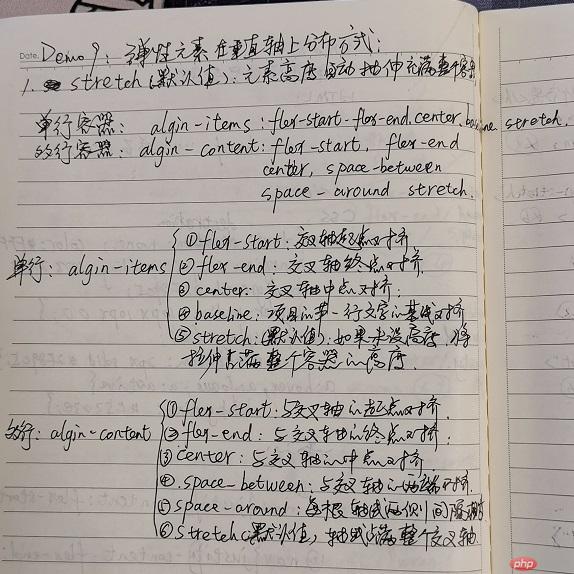 Date.
Demo 9: 弹性元素在垂直轴上分布方式:
1. stretch(默认值): 元素高度自动拉伸充满整个容器
单行容器: algin-items: flex-start-flex-end.center.baseline stretch.
多行容器: algin-content: flex-start, flex-end
center, space-between
space-around stretch.
单行: algin-items
①flex-start: 交叉轴起点对齐.
②flex-end: 交叉轴终点对齐.
③center: 交叉轴中点对齐:
④baseline: 项目的第一行文字的基线对齐
⑤stretch:(默认值): 如果未设高度, 将
拉伸占满整个容器的高度.
多行: algin-content
①flex-start: 与交叉轴的起点对齐.
②flex-end: 与交叉轴的终点对齐:
③center: 与交叉轴的中点对齐.
④space-between: 与交叉轴的两端对齐.
⑤space-around: 每根轴线两侧间隔相等
⑥stretch(默认值, 轴线占满整个交叉轴.
php